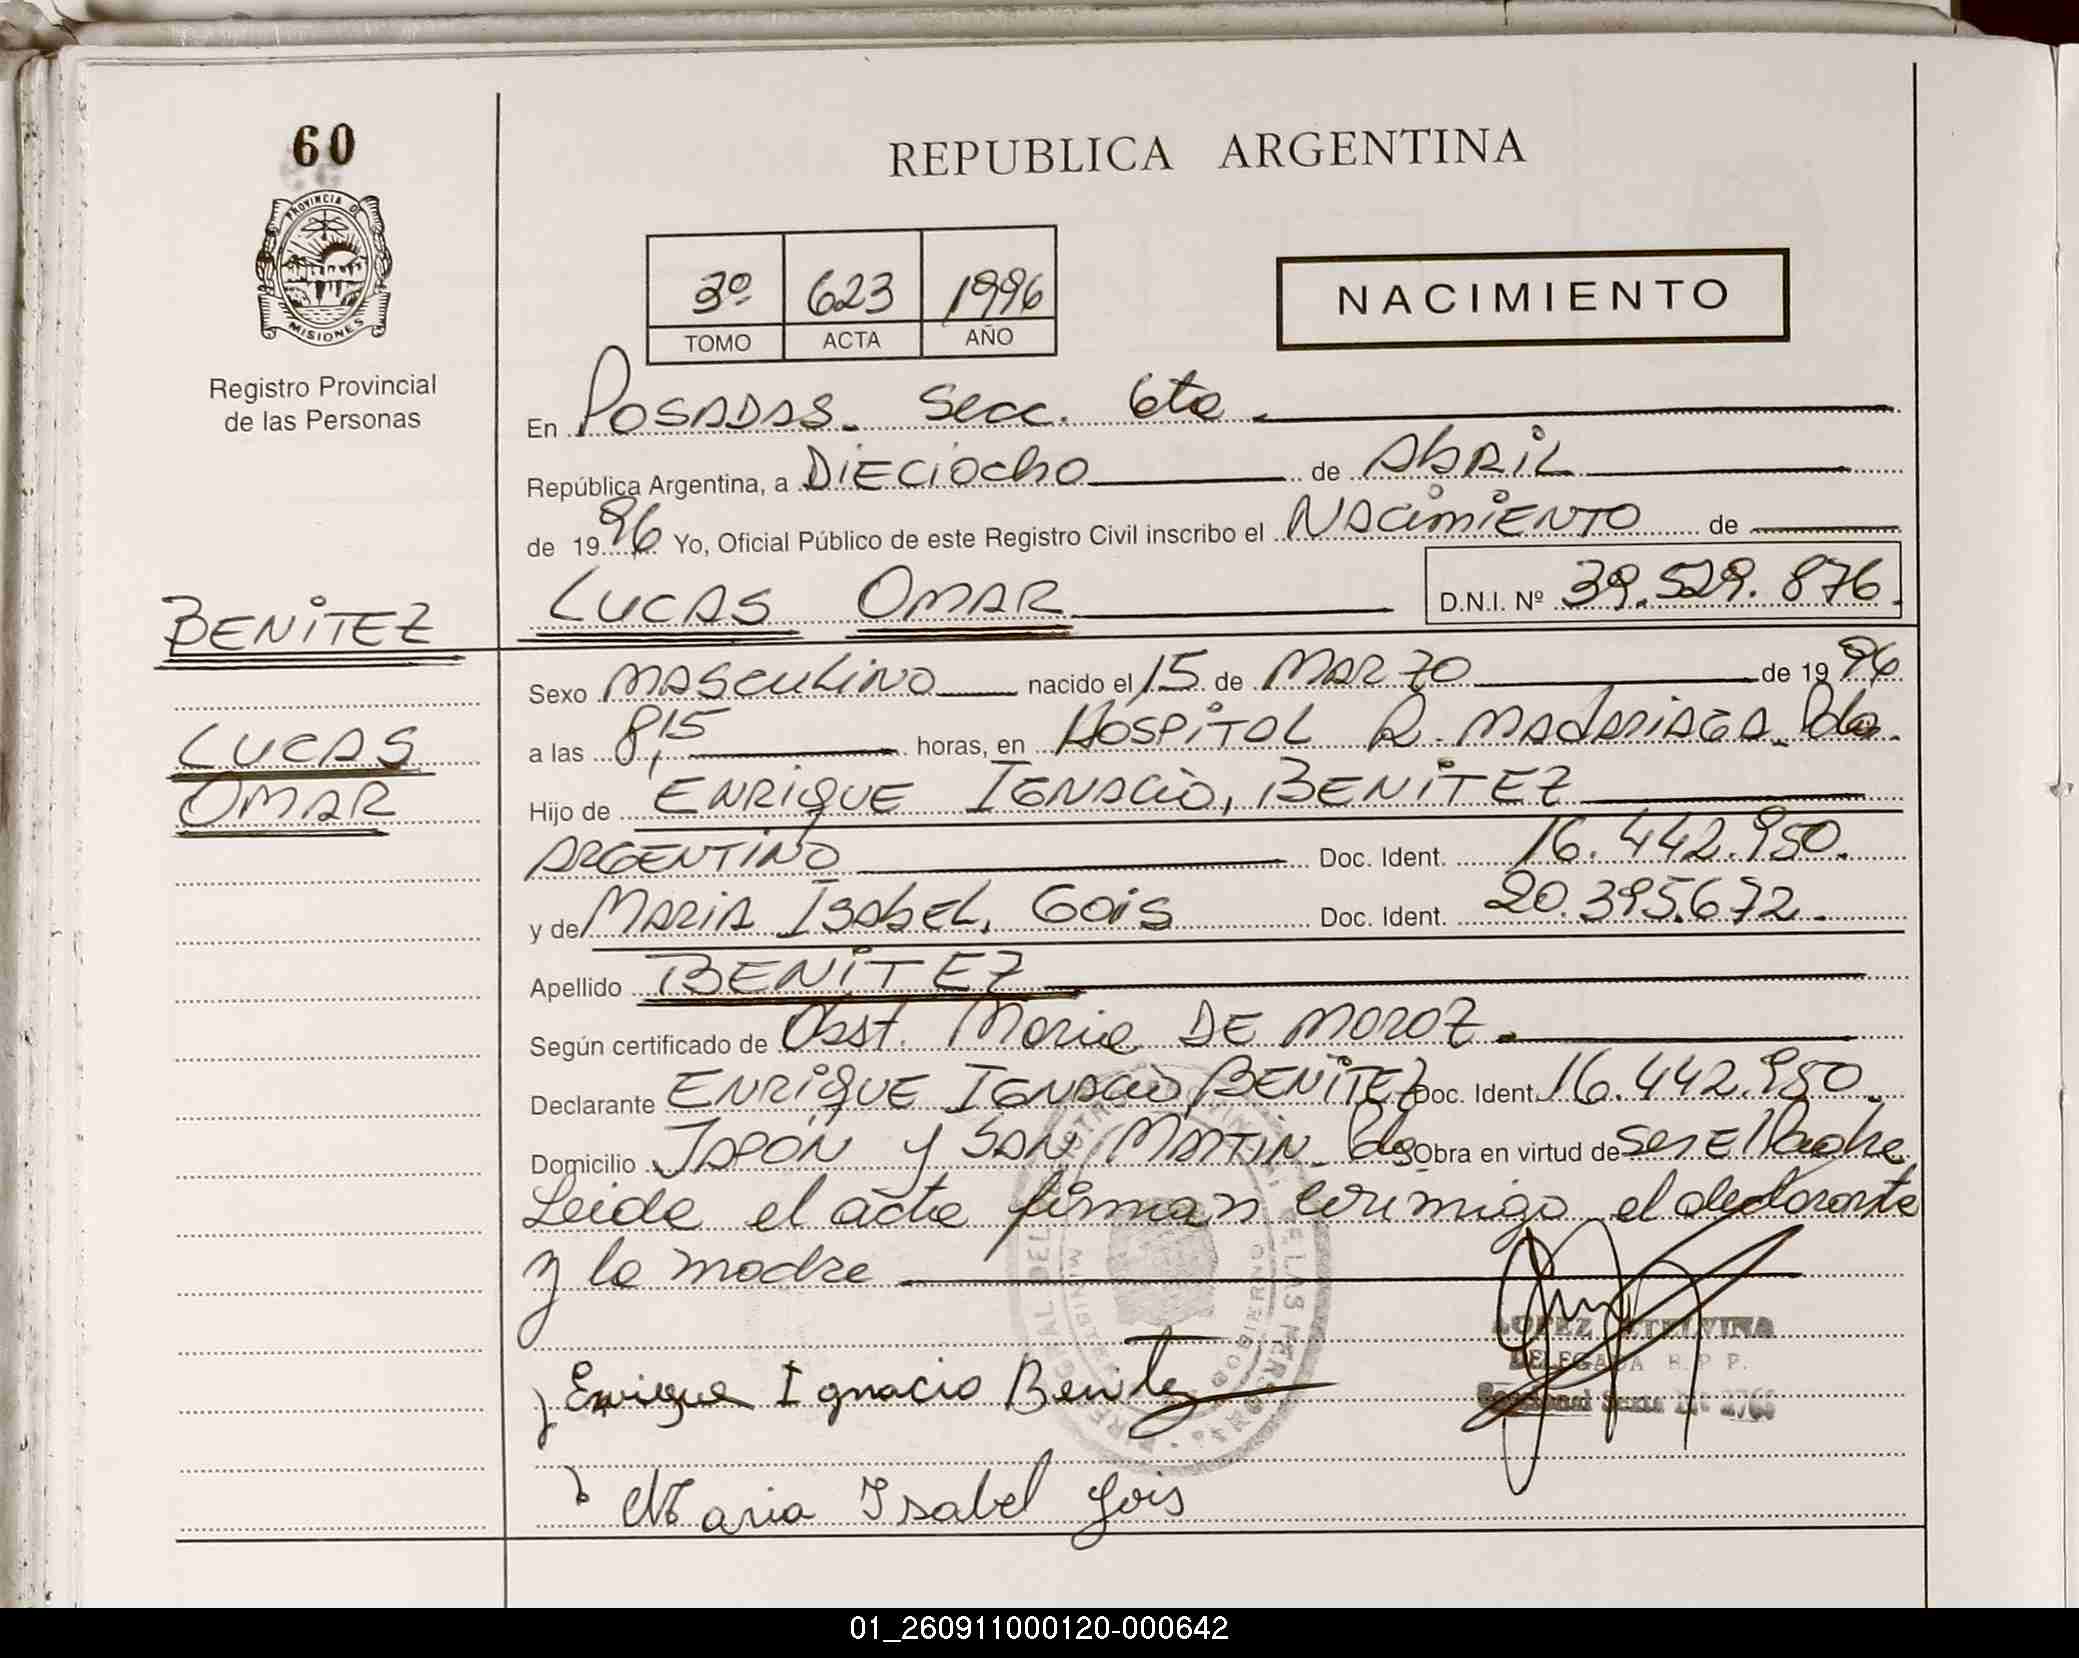 60
PROVINCIA DE
MISIONES
Registro Provincial
de las Personas
REPUBLICA ARGENTINA
3º 623 1996
TOMO ACTA AÑO
NACIMIENTO
En POSADAS. Secc. 6ta.
República Argentina, a DIECIOCHO de ABRIL
de 1996 Yo, Oficial Público de este Registro Civil inscribo el NACIMIENTO de
BENITEZ LUCAS OMAR D.N.I. Nº 39.529.876.
Sexo MASCULINO nacido el 15 de MARZO de 1996
LUCAS
a las 8,15 horas, en HOSPITAL R. MADARIAGA. Pdas.
OMAR
Hijo de ENRIQUE IGNACIO, BENITEZ
ARGENTINO Doc. Ident. 16.442.950.
y de MARIA ISABEL, GOIS Doc. Ident. 20.395.672.
Apellido BENITEZ
Según certificado de Obst. Maria DE MOROZ.
Declarante ENRIQUE IGNACIO BENITEZ Doc. Ident. 16.442.950.
Domicilio JAPÓN y SAN MARTIN. Pdas Obra en virtud de Ser El Padre
Leida el acta firman conmigo el declarante
y la madre
LOPEZ ETELVINA
DELEGADA R. P. P.
Seccional Sexta
Enrique Ignacio Benitez
Maria Isabel Gois
01_260911000120-000642